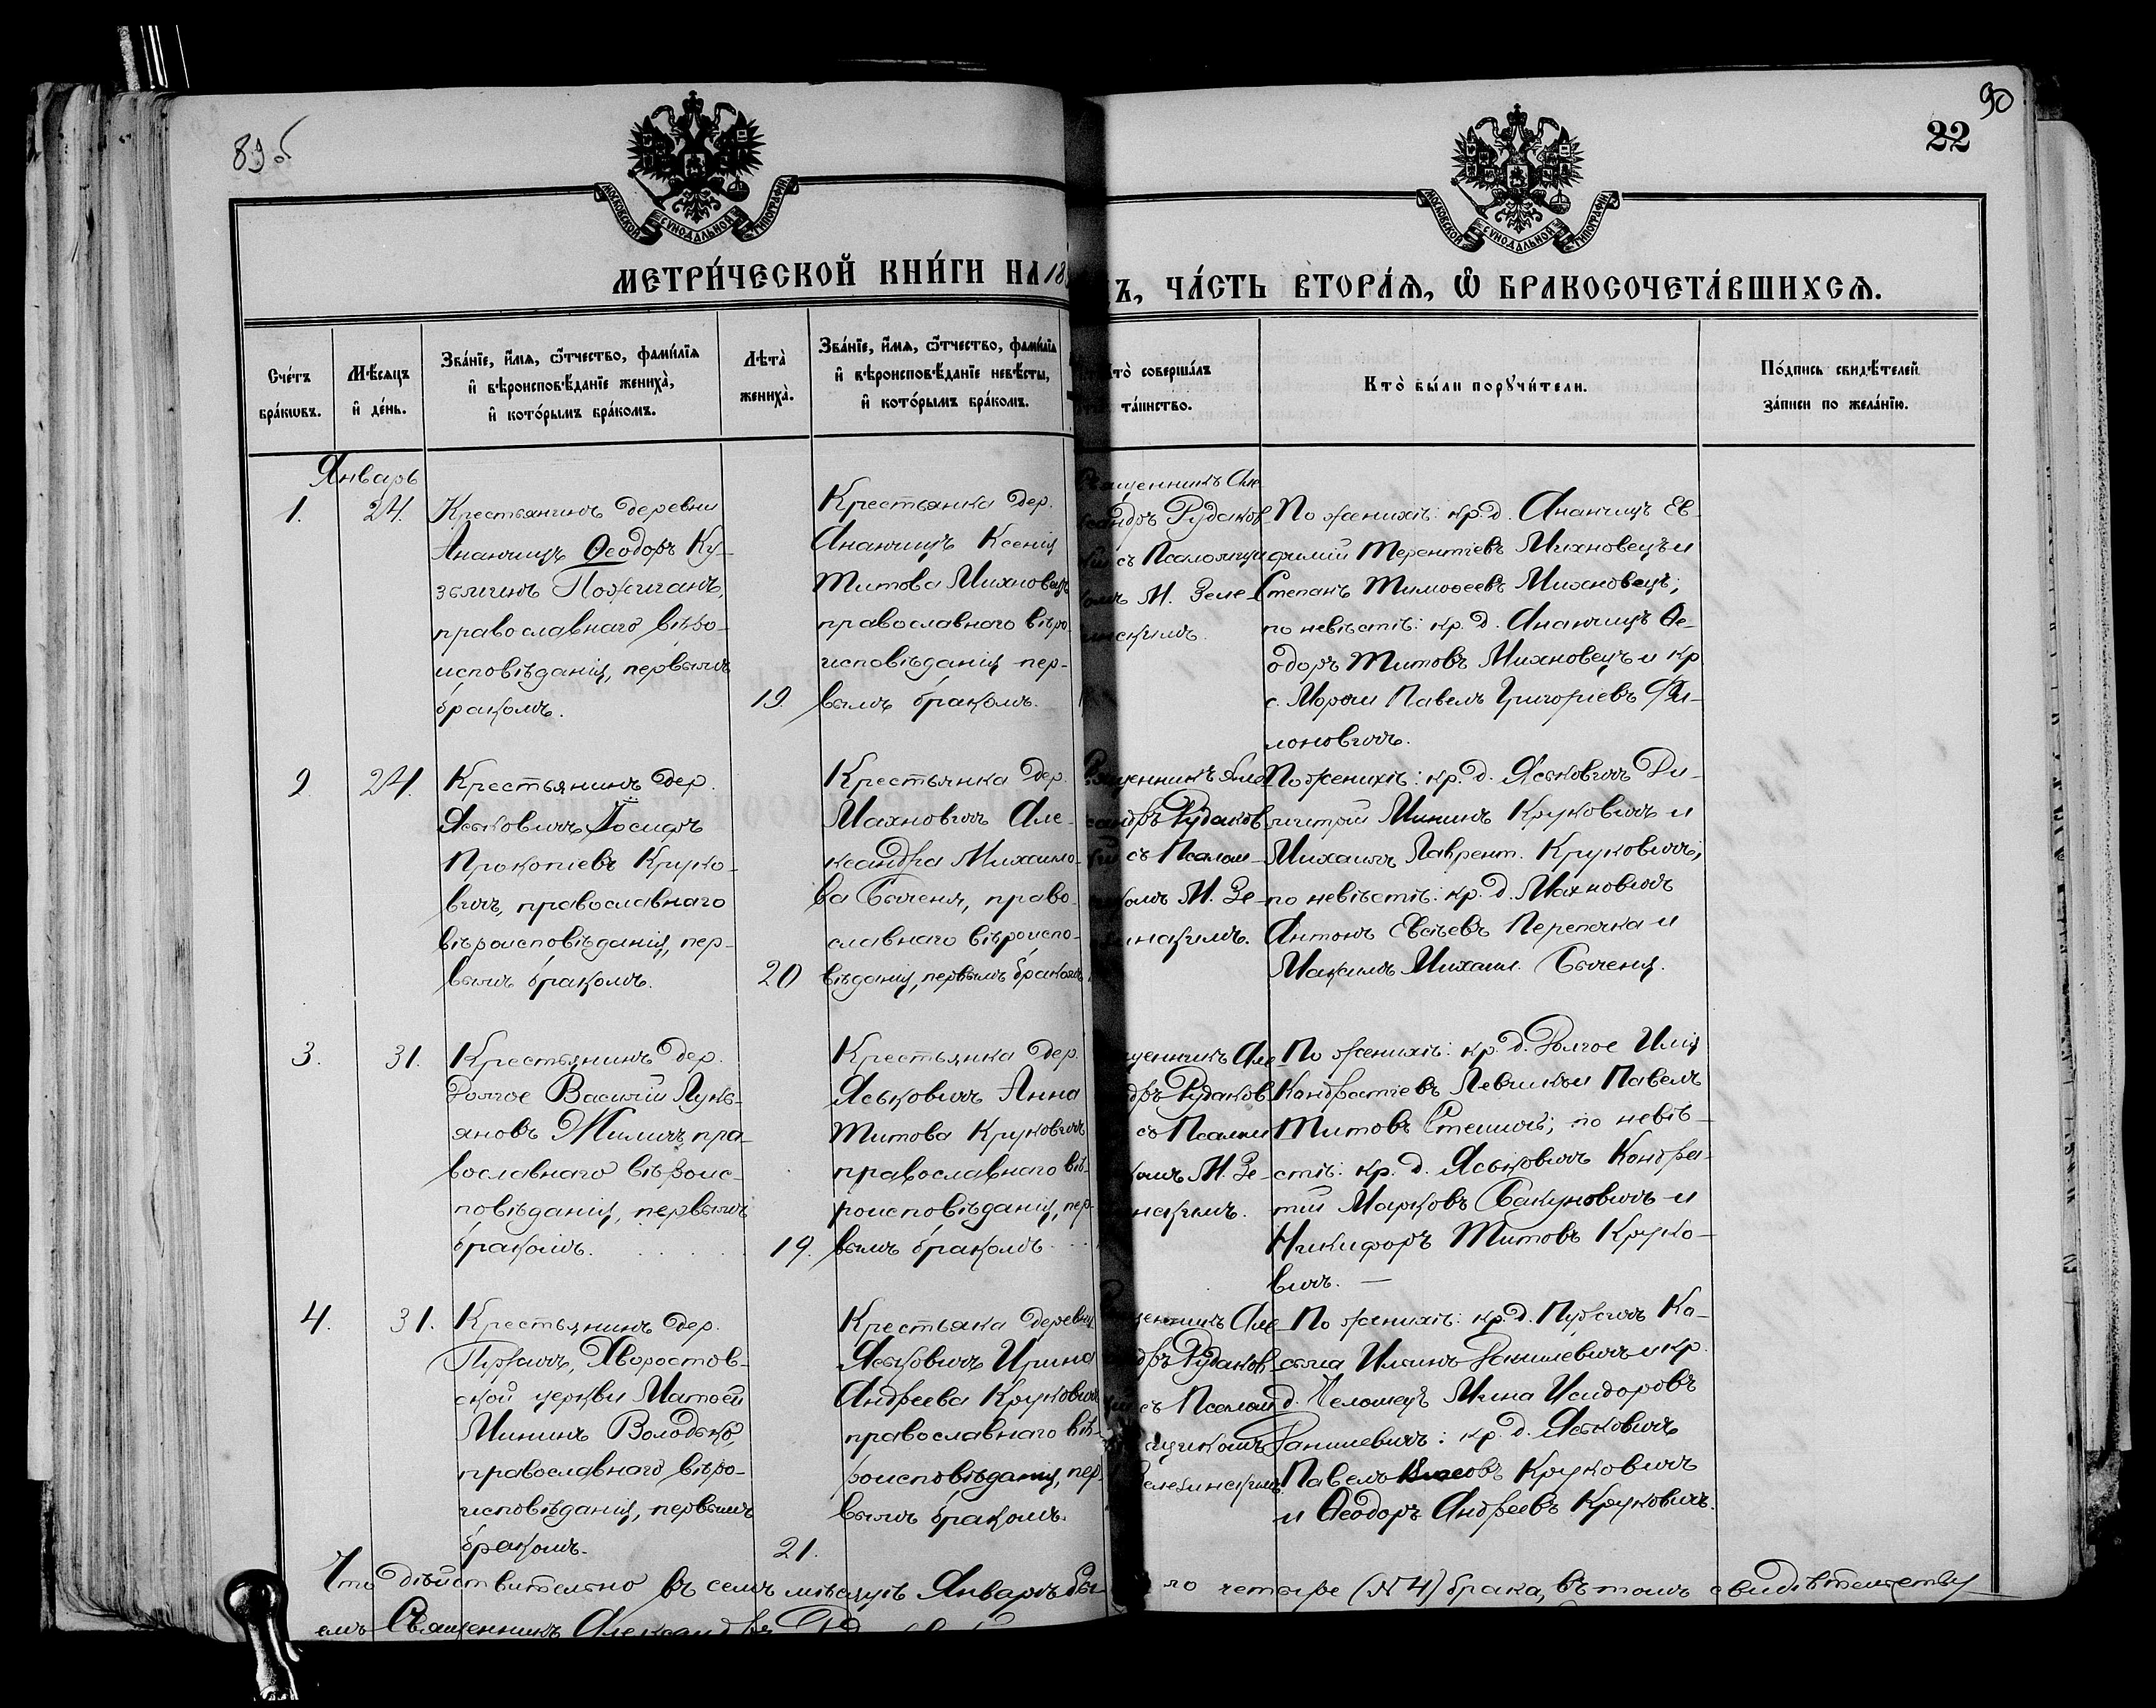 89 об
90
22
МОСКОВСКОЙ СѴНОДАЛЬНОЙ ТИПОГРАФІИ
МОСКОВСКОЙ СѴНОДАЛЬНОЙ ТИПОГРАФІИ
МЕТРИ́ЧЕСКОЙ КНИ́ГИ НА 18
Ъ, ЧА́СТЬ ВТОРА́Ѧ, Ѽ БРАКОСОЧЕТА́ВШИХСѦ.
Сче́тъ
бра́кѡвъ.
Мѣ́сяцъ
и҆ де́нь.
Зва́нїе, и҆́мѧ, ѻ҆́тчество, фами́лїѧ
и҆ вѣроисповѣ́данїе жениха̀,
и҆ кото́рымъ бра́комъ.
Лѣта̀
жениха̀.
Зва́нїе, и҆́мѧ, ѻ҆́тчество, фами́лїѧ
и҆ вѣроисповѣ́данїе невѣ́сты,
и҆ кото́рымъ бра́комъ.
то̀ соверша́лъ
та́инство.
Кто̀ бы́ли порꙋчи́тели.
По́дпись свидѣ́телей
за́писи по жела́нїю.
Январь
1.
24.
Крестьянинъ деревни
Ананчицъ Ѳеодоръ Ку-
зьминъ Пожиганъ,
православнаго вѣро-
исповѣданія, первымъ
бракомъ.
19
Крестьянка дер.
Ананчицъ Ксенія
Титова Михновецъ
православнаго вѣро-
исповѣданія пер-
вымъ бракомъ.
Священникъ Але
ксандръ Рудаков-
съ Псаломщи
комъ М. Зеле-
инскимъ.
По женихѣ: кр. д. Ананчицъ Ев-
фимій Терентіевъ Михновецъ и
Степанъ Тимоѳеевъ Михновецъ;
по невѣстѣ: кр. д. Ананчицъ Ѳе-
одоръ Титовъ Михновецъ и кр.
с. Морочи Павелъ Григорьевъ Фи-
моновичъ.
2
24.
Крестьянинъ дер.
Яськовичъ Іосифъ
Прокопіевъ Круко-
вичъ, православнаго
вѣроисповѣданія, пер-
вымъ бракомъ.
20
Крестьянка дер.
Махновичъ Але-
ксандра Михаило-
ва Сыченя, право-
славнаго вѣроиспо-
вѣданія, первымъ бракомъ
Священникъ Але
ксандръ Рудаков
съ Псалом-
комъ М. Зе-
инскимъ.
По женихѣ: кр. д. Яськовичъ Ди-
митрій Мининъ Круковичъ и
Михаилъ Лаврент. Круковичъ;
по невѣстѣ: кр. д. Махновичъ
Антонъ Евсѣевъ Перепечка и
Максимъ Михаил. Сыченя.
3.
31.
Крестьянинъ дер.
Долгое Василій Лукь-
яновъ Жиличъ, пра-
вославнаго вѣроис-
повѣданія, первымъ
бракомъ.
19.
Крестьянка дер.
Яськовичъ Анна
Титова Круковичъ
православнаго вѣ-
роисповѣданія, пер-
вымъ бракомъ.
щенникъ Але
дръ Рудаков
съ Псалми
комъ М. Зе-
инскимъ.
По женихѣ: кр. д. Долгое Илія
Кондратіевъ Левчик и Павелъ
Титовъ; по невѣ-
стѣ: кр. д. Яськовичъ Кондра-
тій Марковъ Бакуновичъ и
Никифоръ Титовъ Круко-
вичъ. —
4.
31.
Крестьянинъ дер.
Пузичъ, Хворостов-
ской церкви Матѳей
Мининъ Володько,
православнаго вѣро-
исповѣданія, первымъ
бракомъ.
21.
Крестьяка деревни
Яськовичъ Ирина
Андреева Круковичъ
православнаго вѣ-
роисповѣданія, пер-
вымъ бракомъ.
щенникъ Але
дръ Рудаков
съ Псалом
щикомъ
Зелезинскимъ
По женихѣ: кр. д. Пузичъ Ко-
сьма Ильинъ Данилевичъ и кр.
д. Челонецъ Мина Исидоровъ
Данилевичъ: кр. д. Яськовичъ
Павелъ Власовъ Круковичъ
и Ѳеодоръ Андреевъ Круковичъ.
Что дѣйствительно въ семъ мѣсяцѣ Январѣ бы ло четыре (№ 4) брака, въ томъ свидѣтельству
емъ Священникъ Александръ